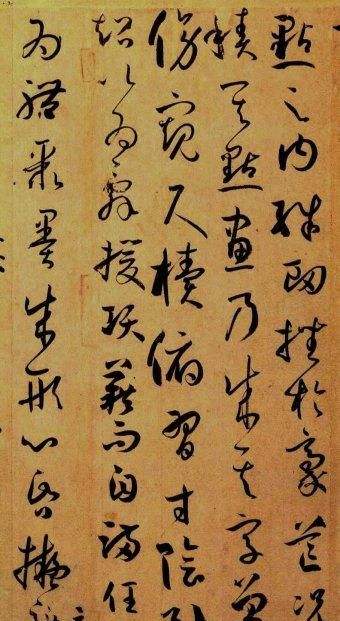 點之内殊衄挫於豪芒況
積其點畫乃成其字曾
傍窺尺櫝俯習寸陰引
超以為辭援項藉而自滿任
為體聚墨成形心昏擬效